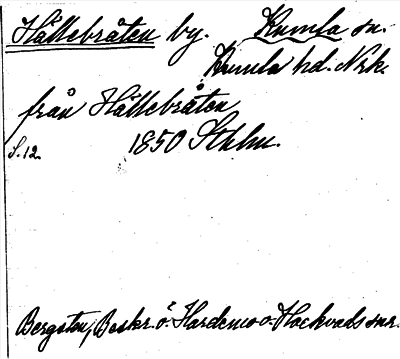 Hällebråten by. Kumla sn.
Kumla hd. Nrk.
från Hällebråten
S. 12. 1850 Sthlm.
Bergsten, Beskr. ö. Hardemo o. Hackvads snr.